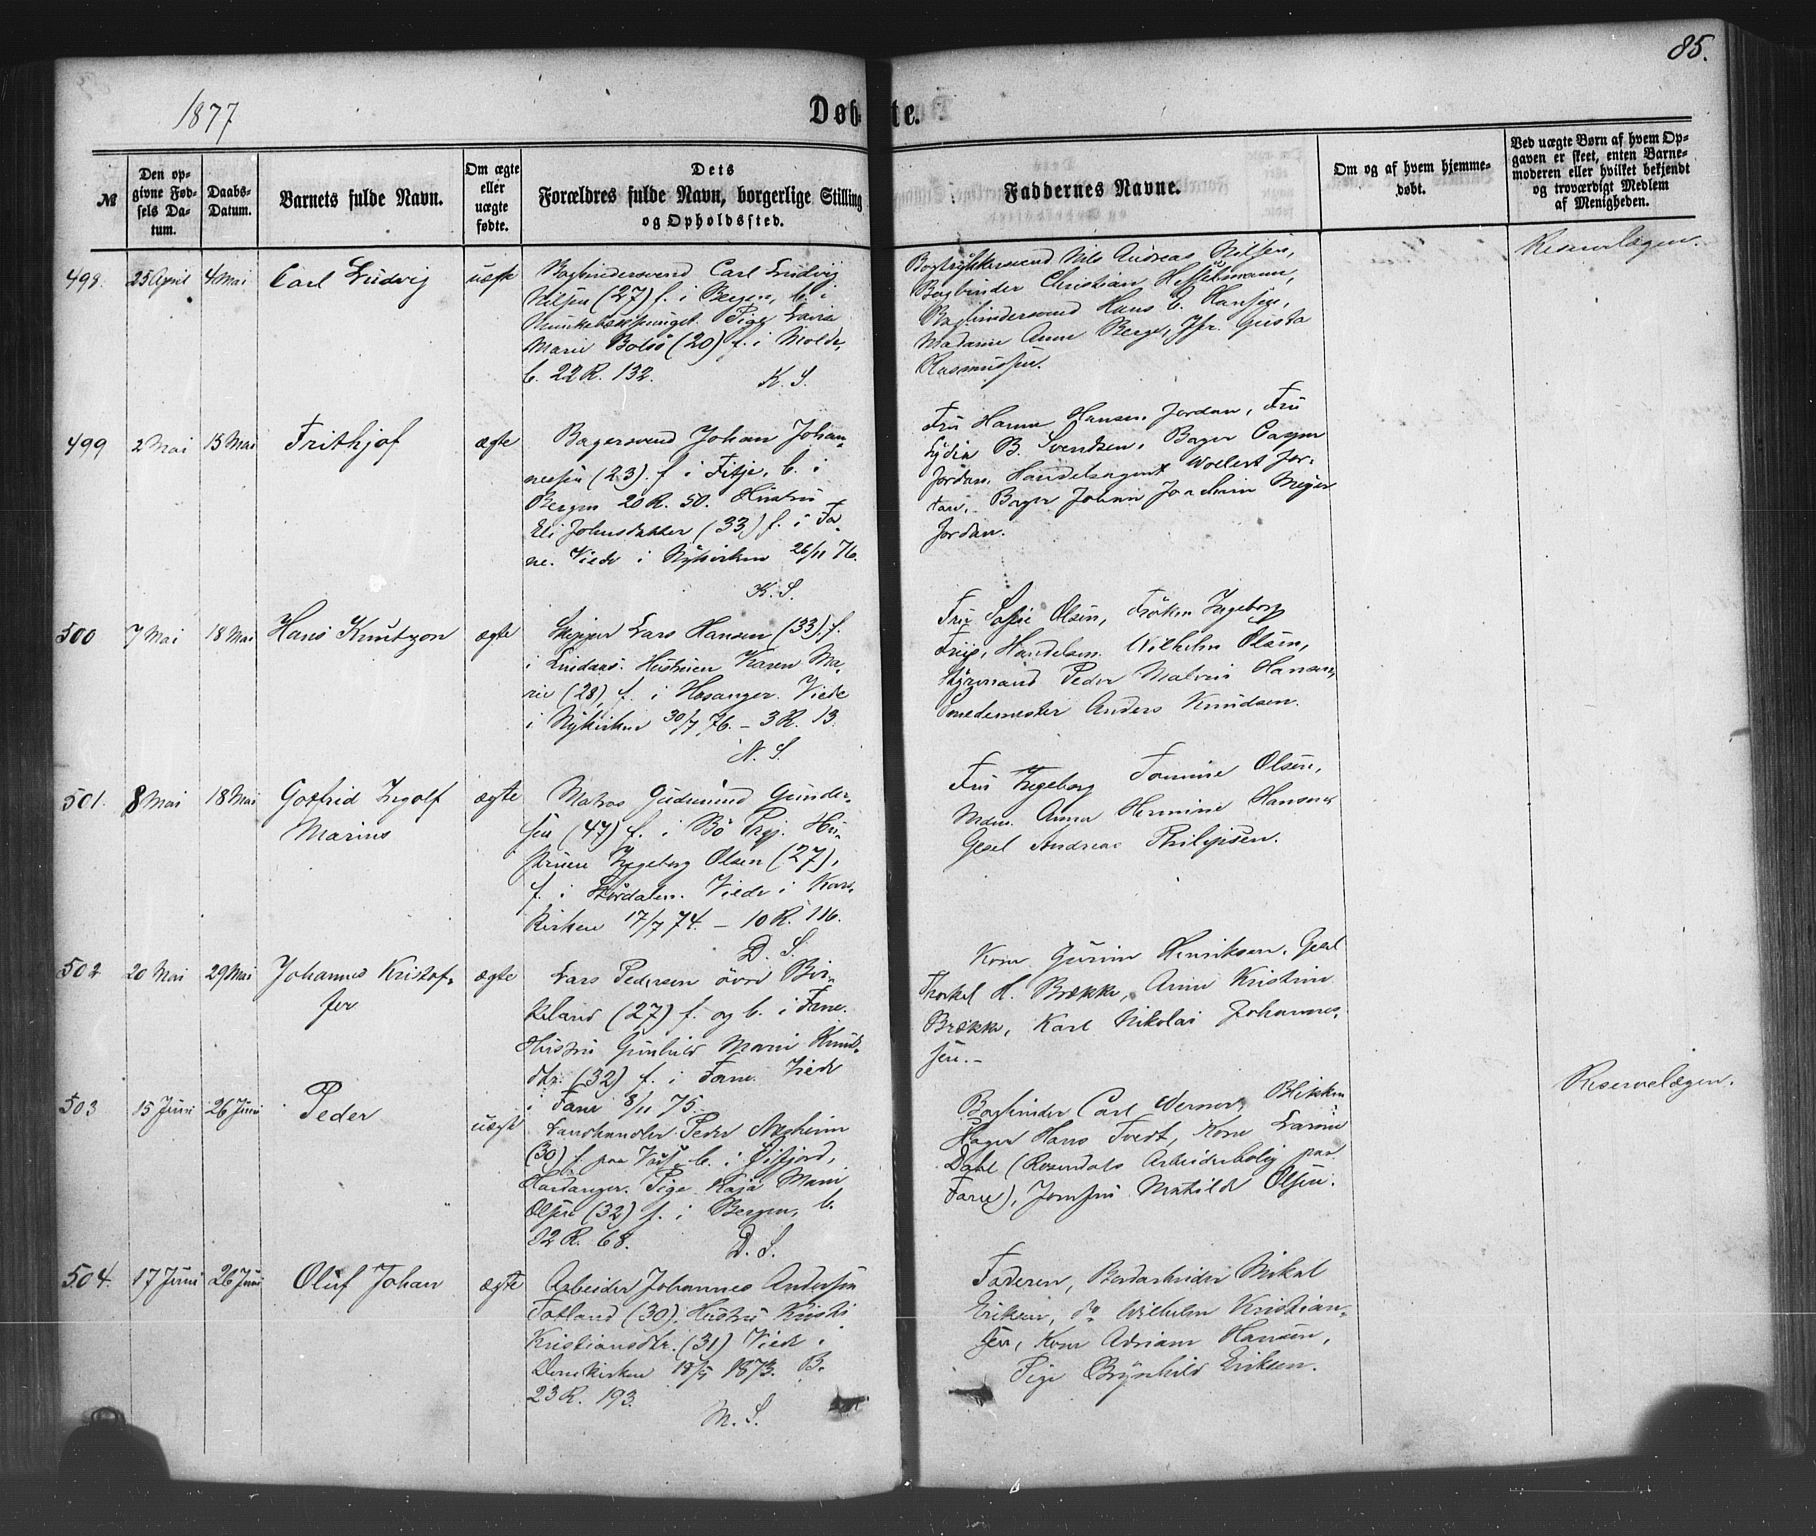 85.
1877
Døbte.
№
Den opgivne Fødsels Datum.
Daabs-Datum.
Barnets fulde Navn.
Om ægte eller uægte fødte.
Dets Forældres fulde Navn, borgerlige Stilling og Opholdssted.
Faddernes Navne.
Om og af hvem hjemmedøbt.
Ved uægte Børn af hvem Opgaven er skeet, enten Barnemoderen eller hvilket bekjendt og troværdigt Medlem af Menigheden.
498. 25 April 4 Mai Carl Ludvig uægte
Bogbindersvend Carl Ludvig
Nilsen (27) f. i Bergen, b. i
Pige Lavra
Marie Bolsö (20) f. i Molde,
b. 22 R. 132. K. S.
Bogtrykkersvend Nils Andreas Nilsen,
Bogbinder Christian Hesselmann,
Bogbindersvend Hans C. Hansen,
Madame Anna Berge, Jfr. Gusta
Rasmussen.
Reservelægen.
499 2 Mai 15 Mai Frithjof ægte
Bagersvend Johan Johan-
nessen (23) f. i Fitje, b. i
Bergen 20 R. 50. Hustru
Eli Johnsdatter (33) f. i Fa-
ne. Viede i Nykirken 26/11 76.
K. S.
Fru Hanna Hansen Jordan, Fru
Lydia B. Svendsen, Bager Casper
Jordan, Handelsagent Wollert Jor-
dan, Bager Johan Joachim Meyer
Jordan.
500 7 Mai 18 Mai Hans Knutzon ægte
Skipper Lars Hansen (33) f.
i Lindaas. Hustruen Karen Ma-
rie (28) f. i Hosanger. Viede
i Nykirken 30/7 76. – 3 R. 13.
N. S.
Fru Sofie Olsen, Frøken Ingeborg
Friis, Handelsm. Wilhelm Olsen,
Styrmand Peder Malvin Hansen,
Smedemester Anders Knudsen.
501. 8 Mai 18 Mai Gotfrid Ingolf
Marius ægte
Matros Gudmund Gunder-
sen (47) f. i Bö Prgj. Hu-
struen Ingeborg Olsen (27),
f. i Størdalen. Viede i Kors-
kirken 17/7 74. – 10 R. 116.
D. S.
Fru Ingeborg Tomine Olsen,
Mdm. Anna Hermine Hansen,
Gesel Andreas Philipsen.
502 20 Mai 29 Mai Johannes Kristof-
fer ægte
Lars Pedersen övre Bir-
keland (27) f. og b. i Fane.
Hustru Gunhild Marie Knuds-
dtr. (32) f. i Fane. Viede
i Fane 8/11 75.
Kone Gurine Henriksen, Gesel
Thorkel H. Brække, Anne Kristine
Brække, Karl Nikolai Johannes-
sen. –
503 15 Juni 26 Juni Peder uægte
Landhandler Peder Næsheim
(30) f. paa Voss, b. i Eifjord,
Hardanger. Pige Kaja Marie
Olsen (32) f. i Bergen, b.
12 R. 68. D. S.
Bogbinder Carl Werner, Blikken-
slager Hans Tvedt, Kone Larine
Dahl (Rosendals Arbeiderbolig paa
Fane), Jomfru Matilde Olsen.
Reservelægen.
504. 17 Juni 26 Juni Oluf Johan ægte
Arbeider Johannes Andersen
Totland (30). Hustru Kristi
Kristiansdtr. (31) Viede i
Domkirken 18/5 1873. B.
23 R. 193.
M. S.
Faderen, Bordarbeider Mikal
Eriksen, do Wilhelm Kristian-
sen, Kone Adriane Hansen,
Pige Brynhild Eriksen.